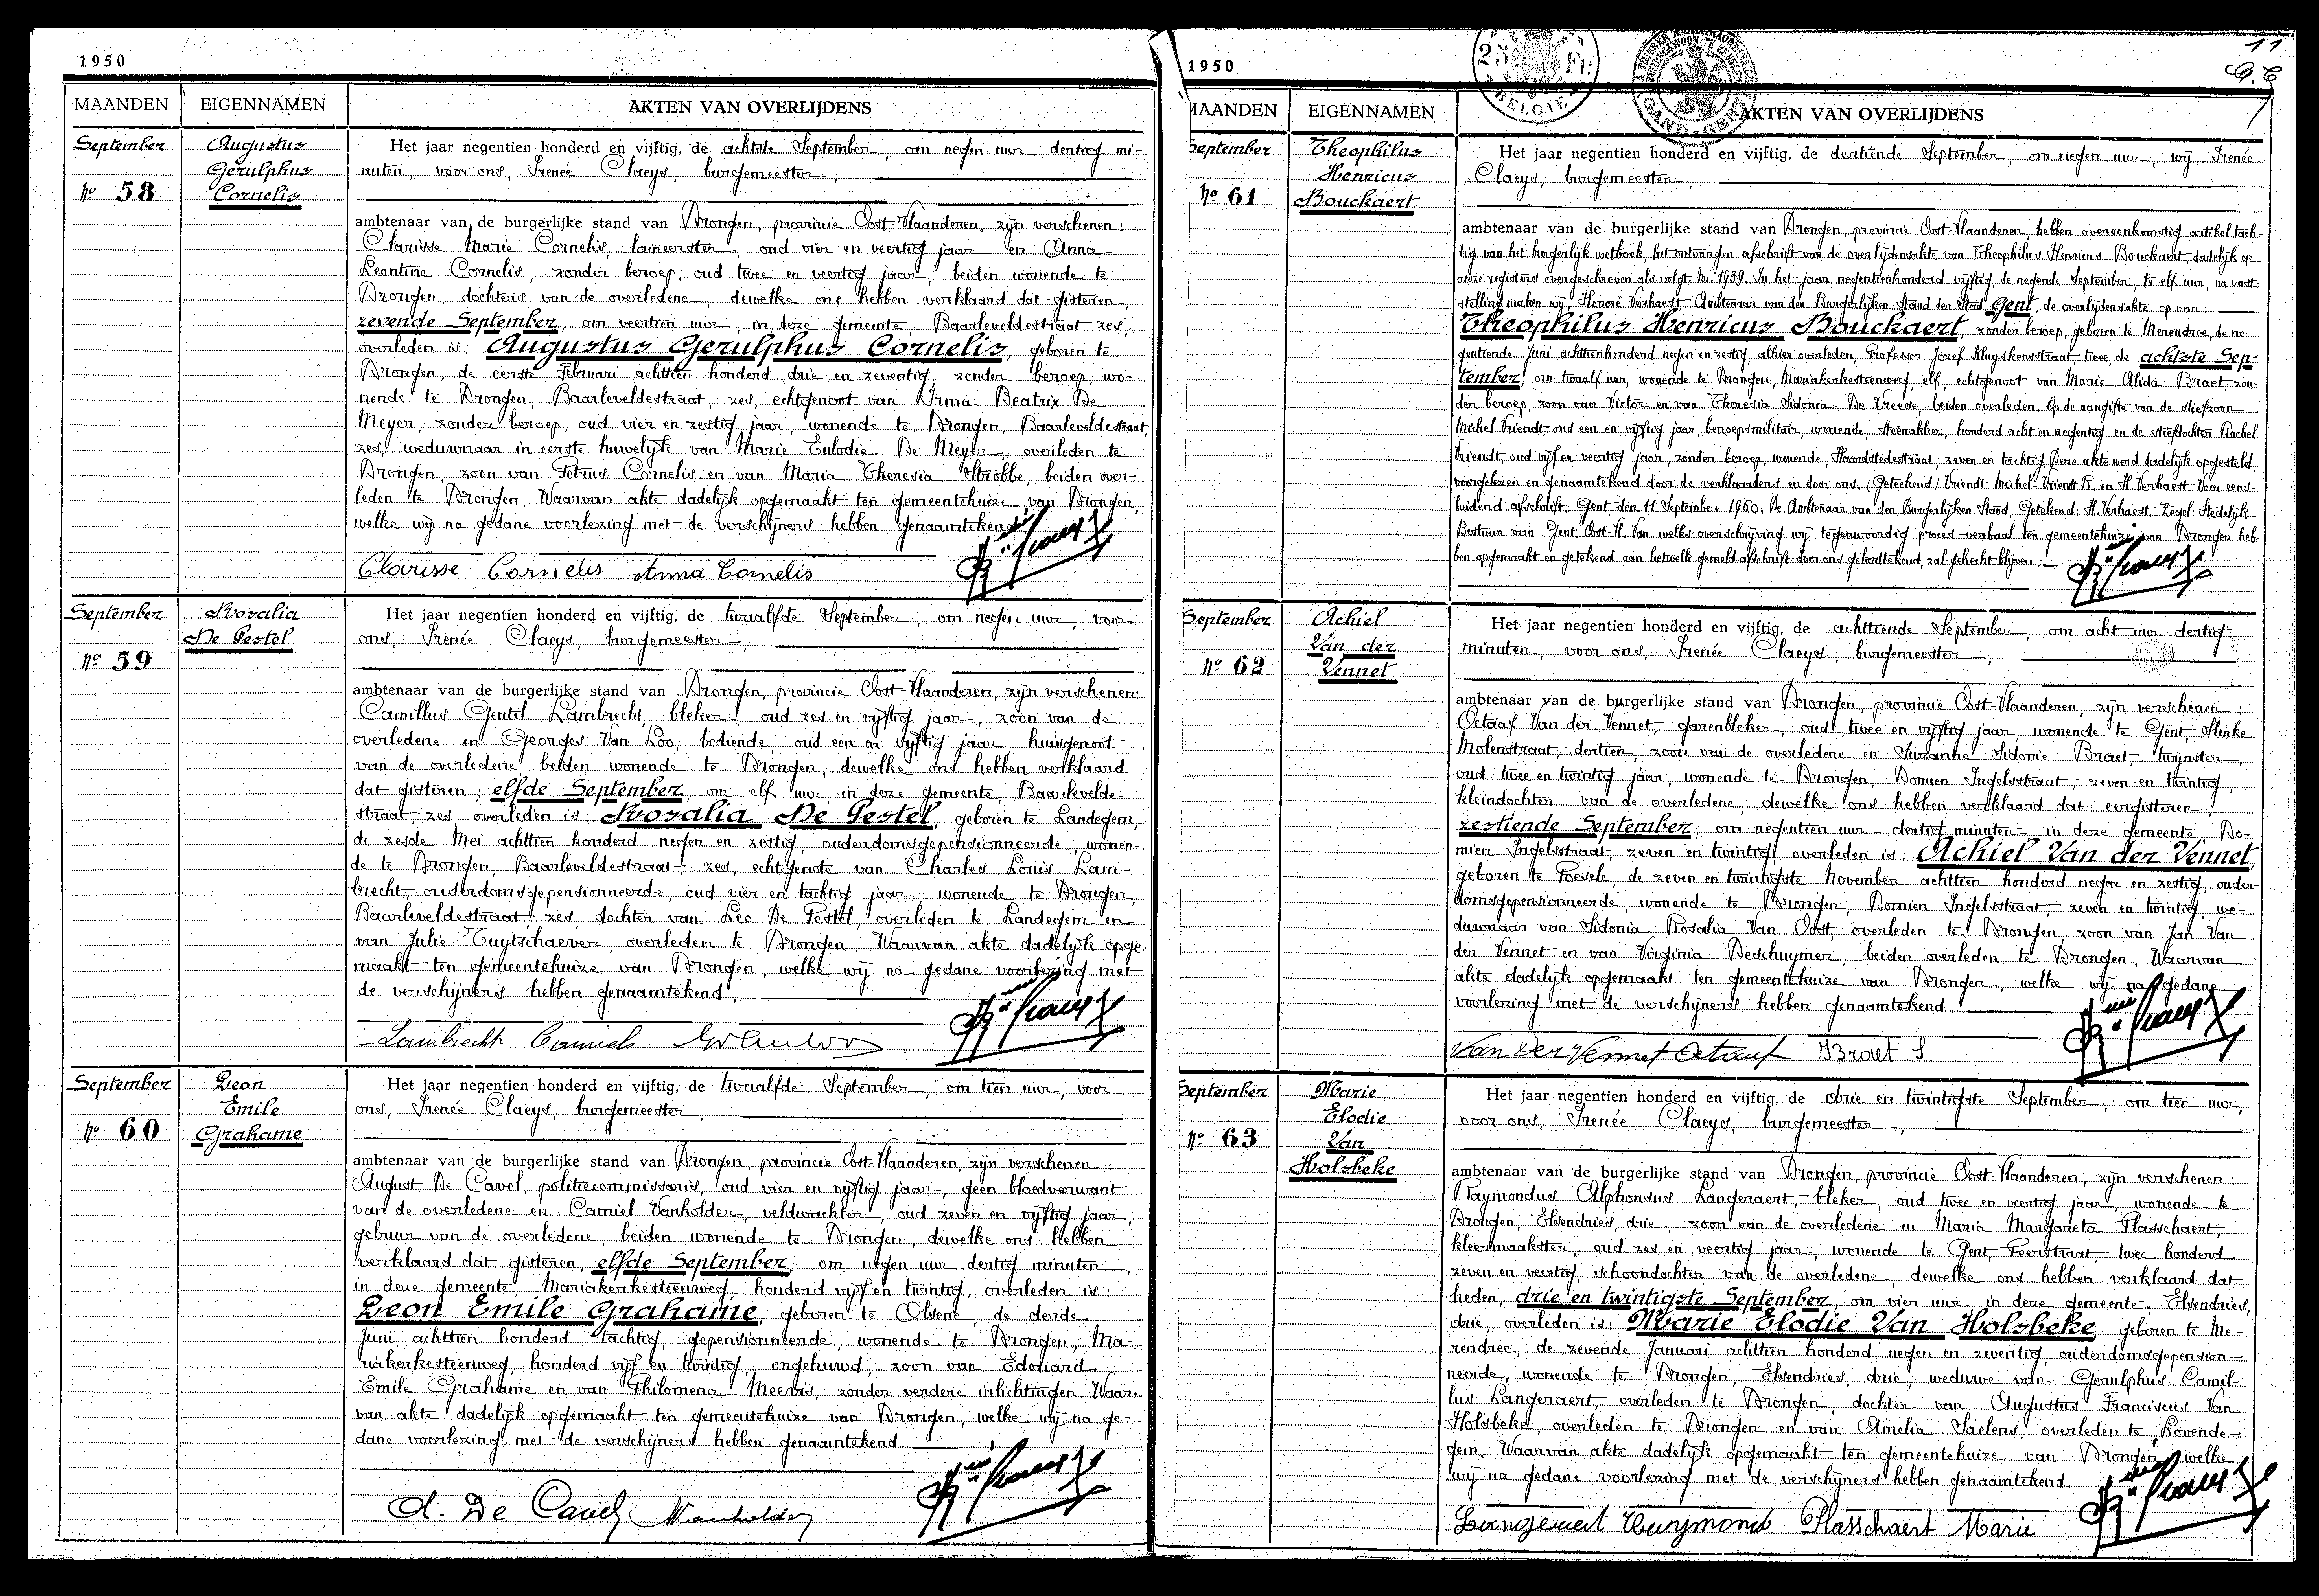 1950
MAANDEN EIGENNAMEN AKTEN VAN OVERLIJDENS
September
No 58
Augustus
Gerulphus
Cornelis
Het jaar negentien honderd en vijftig, de achtste September, om negen uur dertig mi-
nuten, voor ons, Irenée Claeys, burgemeester,
ambtenaar van de burgerlijke stand van Drongen, provincie Oost-Vlaanderen, zijn verschenen:
Clarisse Marie Cornelis, oud vier en veertig jaar en Anna
Leontine Cornelis, zonder beroep, oud twee en veertig jaar, beiden wonende te
Drongen, dochters van de overledene, dewelke ons hebben verklaard dat gisteren,
zevende September, om veertien uur, in deze gemeente, Baarleveldestraat zes,
overleden is: Augustus Gerulphus Cornelis, geboren te
Drongen, de eerste Februari achttien honderd drie en zeventig, zonder beroep, wo-
nende te Drongen, Baarleveldestraat, zes, echtgenoot van Irma Beatrix De
Meyer, zonder beroep, oud vier en zestig jaar, wonende te Drongen, Baarleveldestraat,
zes, weduwnaar in eerste huwelijk van Marie Eulodie De Meyer, overleden te
Drongen, zoon van Petrus Cornelis en van Maria Theresia Strobbe, beiden over-
leden te Drongen. Waarvan akte dadelijk opgemaakt ten gemeentehuize van Drongen,
welke wij na gedane voorlezing met de verschijners hebben genaamtekend
Clarisse Cornelis Anna Cornelis
September
No 59
Rosalia
De Pestel
Het jaar negentien honderd en vijftig, de twaalfde September, om negen uur, voor
ons, Irenée Claeys, burgemeester,
ambtenaar van de burgerlijke stand van Drongen, provincie Oost-Vlaanderen, zijn verschenen:
Camillus Gentil Lambrecht, bleker, oud zes en vijftig jaar, zoon van de
overledene en Georges Van Loo, bediende, oud een en vijftig jaar, huisgenoot
van de overledene, beiden wonende te Drongen, dewelke ons hebben verklaard
dat gisteren; elfde September, om elf uur in deze gemeente, Baarlevelde-
straat, zes, overleden is: Rosalia De Pestel, geboren te Landegem,
de zesde Mei achttien honderd negen en zestig, ouderdomsgepensionneerde, wonen-
de te Drongen, Baarleveldestraat, zes, echtgenote van Charles Louis Lam-
brecht, ouderdomsgepensionneerde, oud vier en tachtig jaar, wonende te Drongen,
Baarleveldestraat, zes, dochter van Leo De Pestel, overleden te Landegem en
van Julie Tuytschaever, overleden te Drongen. Waarvan akte dadelijk opge-
maakt ten gemeentehuize van Drongen, welke wij na gedane voorlezing met
de verschijners hebben genaamtekend.
Lambrecht Camiel G. Van Loo
September
No 60
Leon
Emile
Grahame
Het jaar negentien honderd en vijftig, de twaalfde September, om tien uur, voor
ons, Irenée Claeys, burgemeester,
ambtenaar van de burgerlijke stand van Drongen, provincie Oost-Vlaanderen, zijn verschenen:
August De Cavel, politiecommissaris, oud vier en vijftig jaar, geen bloedverwant
van de overledene en Camiel Vanholder, veldwachter, oud zeven en vijftig jaar,
gebuur van de overledene, beiden wonende te Drongen, dewelke ons hebben
verklaard dat gisteren, elfde September, om negen uur dertig minuten,
in deze gemeente, Mariakerkesteenweg, honderd vijf en twintig, overleden is:
Leon Emile Grahame, geboren te Olsene, de derde
Juni achttien honderd tachtig, gepensionneerde, wonende te Drongen, Ma-
riakerkesteenweg, honderd vijf en twintig, ongehuwd, zoon van Edouard
Emile Grahame en van Philomena Meeris, zonder verdere inlichtingen. Waar-
van akte dadelijk opgemaakt ten gemeentehuize van Drongen, welke wij na ge-
dane voorlezing met de verschijners hebben genaamtekend
A. De Cavel Vanholder
11
1950
25 Fr.
BELGIE
GAND-GENT
MAANDEN EIGENNAMEN AKTEN VAN OVERLIJDENS
September
No 61
Theophilus
Henricus
Bouckaert
Het jaar negentien honderd en vijftig, de dertiende September, om negen uur, wij, Irenée
Claeys, burgemeester,
ambtenaar van de burgerlijke stand van Drongen, provincie Oost-Vlaanderen, hebben overeenkomstig artikel tach-
tig van het burgerlijk wetboek, het ontvangen afschrift van de overlijdensakte van Theophilus Henricus Bouckaert, dadelijk op
onze registers overgeschreven als volgt. Nr. 1939. In het jaar negentienhonderd vijftig, de negende September, te elf uur, na vast-
stelling maken wij, Honoré Verhaest Ambtenaar van den Burgerlijken Stand der Stad Gent, de overlijdensakte op van:
Theophilus Henricus Bouckaert, zonder beroep, geboren te Merendree, de ne-
gentiende Juni achttienhonderd negen en zestig, alhier overleden, Professor Jozef Kluyskensstraat, twee, de achtste Sep-
tember, om twaalf uur, wonende te Drongen, Mariakerkesteenweg, elf, echtgenoot van Marie Alida Braet, zon-
der beroep, zoon van Victor en van Theresia Sidonia De Vreese, beiden overleden. Op de aangifte van de stiefzoon
Michel Vriendt, oud een en vijftig jaar, beroepsmilitair, wonende, Steenakker, honderd acht en negentig en de stiefdochter Rachel
Vriendt, oud vijf en veertig jaar, zonder beroep, wonende, Haardstedestraat, zeven en tachtig. Deze akte werd dadelijk opgesteld,
voorgelezen en genaamtekend door de verklaarders en door ons, (Getekend) Vriendt Michel. Vriendt R. en H. Verhaest. Voor eens-
luidend afschrift. Gent, den 11 September 1950. De Ambtenaar van den Burgerlijken Stand, Getekend: H. Verhaest. Zegel: Stedelijk
Bestuur van Gent. Oost-Vl. Van welks overschrijving wij tegenwoordig proces-verbaal ten gemeentehuize van Drongen heb-
ben opgemaakt en getekend aan hetwelk gemeld afschrift door ons gekanttekend, zal gehecht blijven.
September
No 62
Achiel
Van der
Vennet
Het jaar negentien honderd en vijftig, de achttiende September, om acht uur dertig
minuten, voor ons, Irenée Claeys, burgemeester,
ambtenaar van de burgerlijke stand van Drongen, provincie Oost-Vlaanderen, zijn verschenen:
Octaaf Van der Vennet, garenbleker, oud twee en vijftig jaar, wonende te Gent, Slinke
Molenstraat, dertien, zoon van de overledene en Suzanne Sidonie Braet, twijnster,
oud twee en twintig jaar, wonende te Drongen, Domien Ingelsstraat, zeven en twintig,
kleindochter van de overledene, dewelke ons hebben verklaard dat eergisteren,
zestiende September, om negentien uur dertig minuten in deze gemeente, Do-
mien Ingelsstraat, zeven en twintig, overleden is: Achiel Van der Vennet,
geboren te Poesele, de zeven en twintigste November achttien honderd negen en zestig, ouder-
domsgepensionneerde, wonende te Drongen, Domien Ingelsstraat, zeven en twintig, we-
duwnaar van Sidonia Rosalia Van Oost, overleden te Drongen, zoon van Jan Van
der Vennet en van Virginia Deschuymer, beiden overleden te Drongen. Waarvan
akte dadelijk opgemaakt ten gemeentehuize van Drongen, welke wij na gedane
voorlezing met de verschijners hebben genaamtekend
Van der Vennet Octaaf Braet S
September
No 63
Marie
Elodie
Van
Holsbeke
Het jaar negentien honderd en vijftig, de drie en twintigste September, om tien uur,
voor ons, Irenée Claeys, burgemeester,
ambtenaar van de burgerlijke stand van Drongen, provincie Oost-Vlaanderen, zijn verschenen:
Raymondus Alphonsus Langeraert, bleker, oud twee en veertig jaar, wonende te
Drongen, Elsendries, drie, zoon van de overledene en Maria Margarieta Plasschaert,
kleermaakster, oud zes en veertig jaar, wonende te Gent, Peerstraat, twee honderd
zeven en veertig, schoondochter van de overledene, dewelke ons hebben verklaard dat
heden, drie en twintigste September, om vier uur, in deze gemeente, Elsendries,
drie, overleden is: Marie Elodie Van Holsbeke, geboren te Me-
rendree, de zevende Januari achttien honderd negen en zeventig, ouderdomsgepension-
neerde, wonende te Drongen, Elsendries, drie, weduwe van Gerulphus Camil-
lus Langeraert, overleden te Drongen, dochter van Augustus Franciscus Van
Holsbeke, overleden te Drongen en van Amelia Saelens, overleden te Lovende-
gem. Waarvan akte dadelijk opgemaakt ten gemeentehuize van Drongen, welke
wij na gedane voorlezing met de verschijners hebben genaamtekend.
Langeraert Raymond Plasschaert Marie